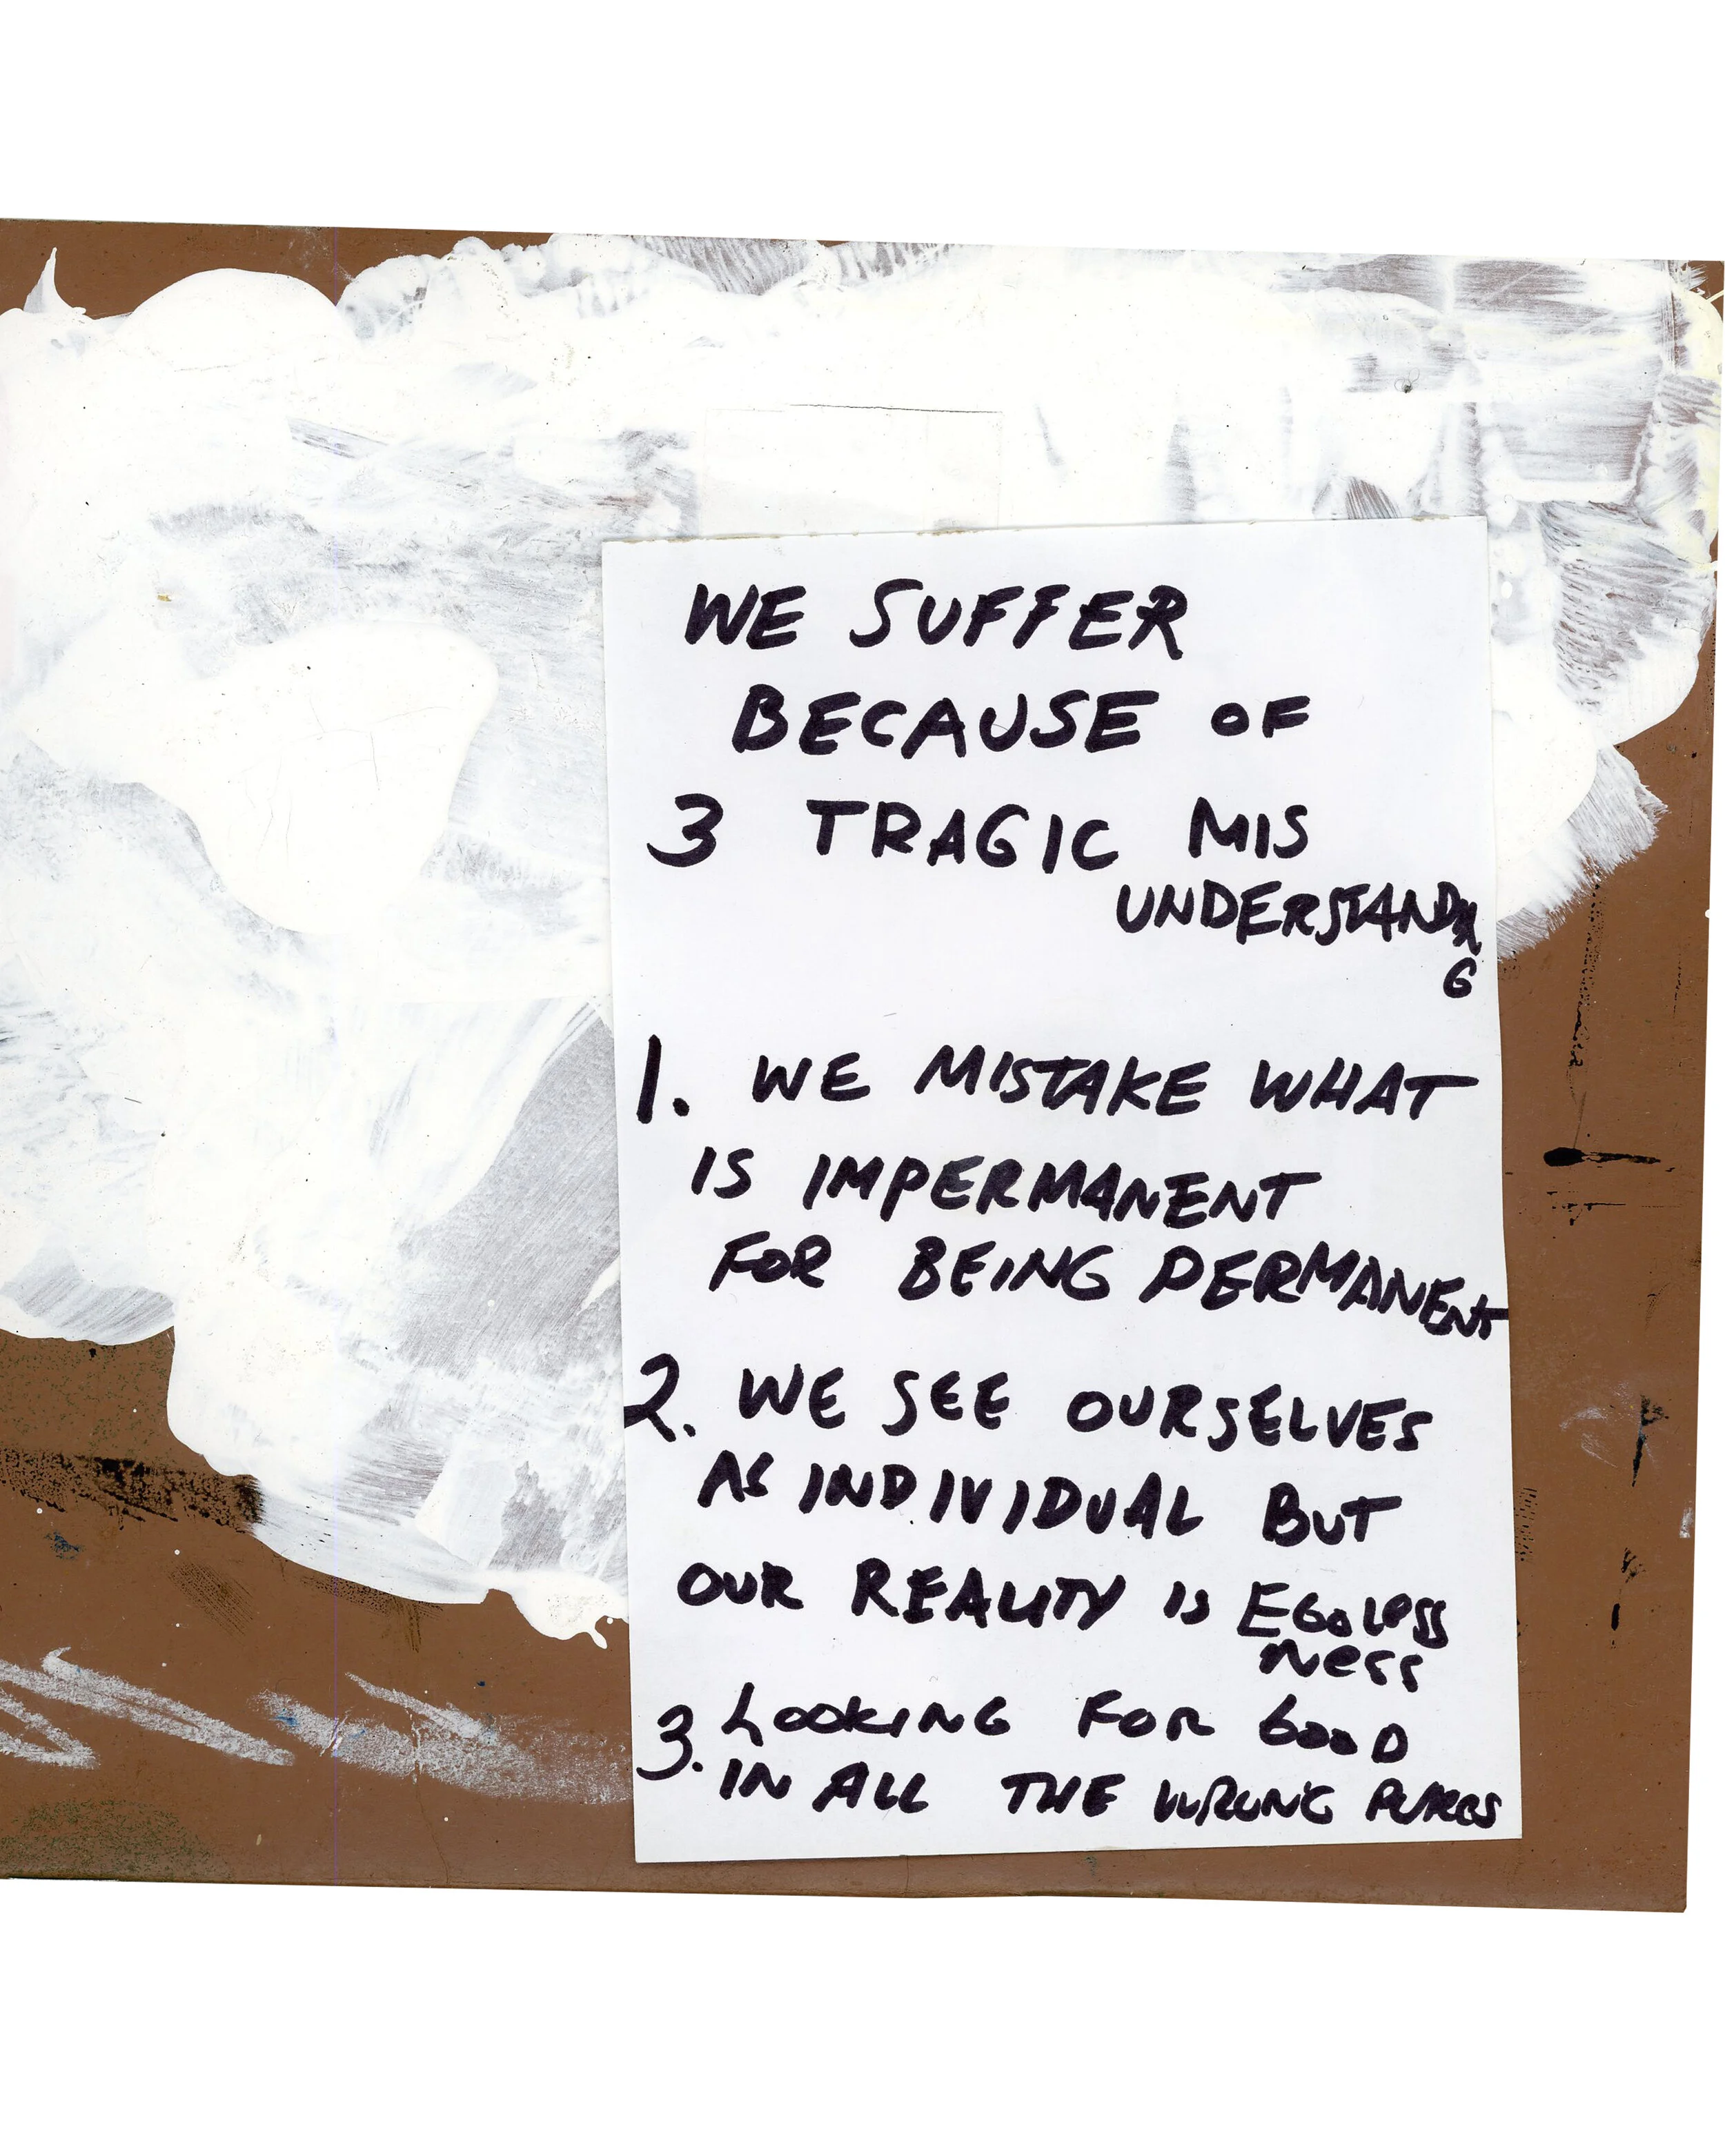 WE SUFFER
BECAUSE OF
3 TRAGIC MIS
UNDERSTANDIN
G
1. WE MISTAKE WHAT
IS IMPERMANENT
FOR BEING PERMANENT
2. WE SEE OURSELVES
AS INDIVIDUAL BUT
OUR REALITY IS EGOLESS
NESS
3. LOOKING FOR GOOD
IN ALL THE WRONG PLACES